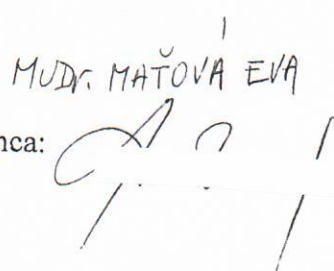 MUDr. MAŤOVÁ EVA
nca: